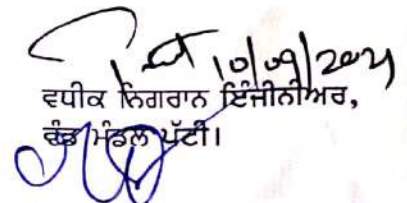 10/09/2021
ਵਧੀਕ ਨਿਗਰਾਨ ਇੰਜੀਨੀਅਰ,
ਵੰਡ ਮੰਡਲ ਪੱਟੀ।